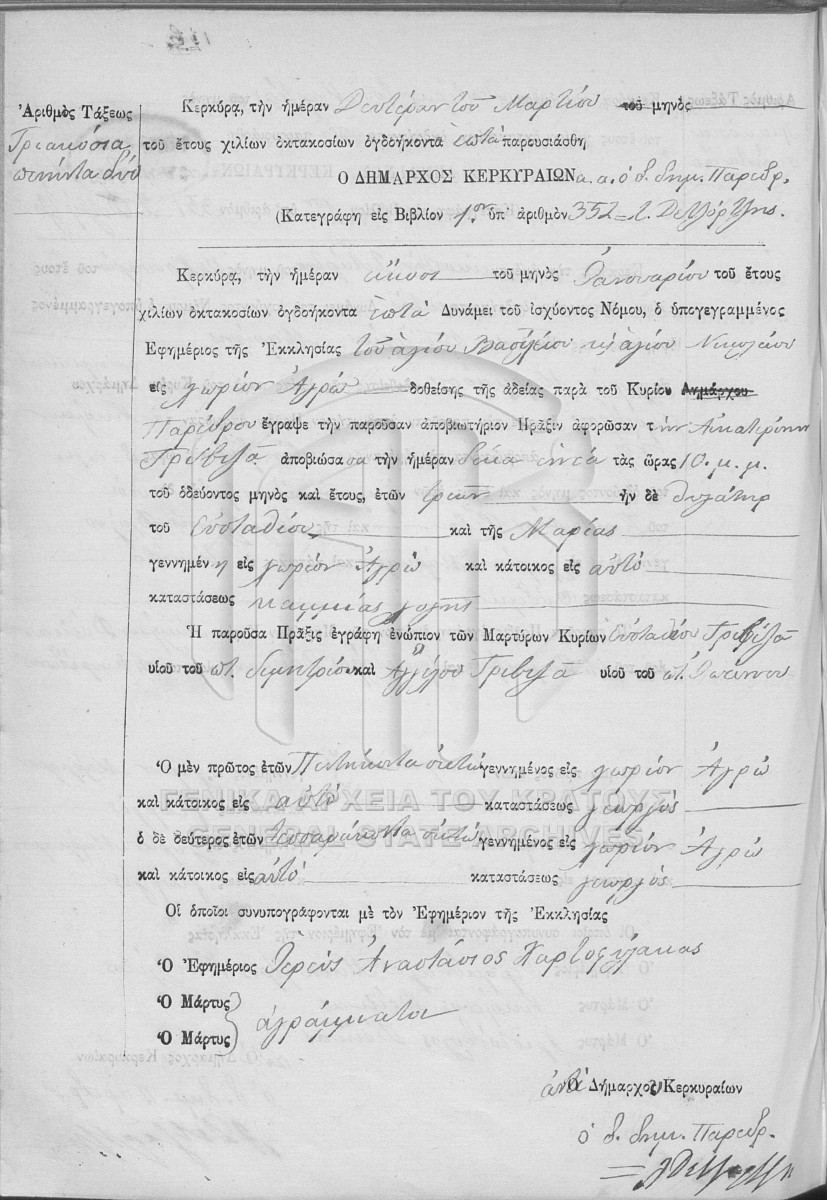 Ἀριθμὸς Τάξεως
Τριακόσια
πενήντα δύο
Κερκύρα, τὴν ἡμέραν Δευτέραν τοῦ Μαρτίου τοῦ μηνὸς
τοῦ ἔτους χιλίων ὀκτακοσίων ὀγδοήκοντα ἑπτὰ παρουσιάσθη
Ὁ ΔΗΜΑΡΧΟΣ ΚΕΡΚΥΡΑΙΩΝ α. α. ὁ δ. δημ. Παρεδρ.
(Κατεγράφη εἰς Βιβλίον 1ον ὑπ' ἀριθμὸν 352
Κερκύρα, τὴν ἡμέραν εἴκοσι τοῦ μηνὸς Ἰανουαρίου τοῦ ἔτους
χιλίων ὀκτακοσίων ὀγδοήκοντα ἑπτὰ Δυνάμει τοῦ ἰσχύοντος Νόμου, ὁ ὑπογεγραμμένος
Ἐφημέριος τῆς Ἐκκλησίας τοῦ ἁγίου Βασιλείου κὶ ἁγίου Νικολάου
εἰς χωρίον Ἀγρὸ δοθείσης τῆς ἀδείας παρὰ τοῦ Κυρίου Δημάρχου
Παρέδρου ἔγραψε τὴν παροῦσαν ἀποβιωτήριον Πρᾶξιν ἀφορῶσαν τὴν Αἰκατερίνην
Τριβιζᾶ ἀποβιώσασα τὴν ἡμέραν δέκα ἐννέα τὰς ὥρας 10. μ. μ.
τοῦ ὁδεύοντος μηνὸς καὶ ἔτους, ἐτῶν τριῶν ἣν δὲ θυγάτηρ
τοῦ Εὐσταθίου καὶ τῆς Μαρίας
γεννημένη εἰς χωρίον Ἀγρὸ καὶ κάτοικος εἰς αὐτὸ
καταστάσεως καμμίας
Ἡ παροῦσα Πρᾶξις ἐγράφη ἐνώπιον τῶν Μαρτύρων Κυρίων Εὐσταθίου Τριβιζᾶ
υἱοῦ τοῦ ποτ. Δημητρίου καὶ Ἀγγέλου Τριβιζᾶ υἱοῦ τοῦ ποτ.
Ὁ μὲν πρῶτος ἐτῶν Πενήκοντα ὀκτὼ γεννημένος εἰς χωρίον Ἀγρὸ
καὶ κάτοικος εἰς αὐτὸ καταστάσεως γεωργὸς
ΓΕΝΙΚΑ ΑΡΧΕΙΑ ΤΟΥ ΚΡΑΤΟΥΣ
GENERAL STATE ARCHIVES
ὁ δὲ δεύτερος ἐτῶν τεσσαράκοντα ὀκτὼ γεννημένος εἰς χωρίον Ἀγρὸ
καὶ κάτοικος εἰς αὐτὸ καταστάσεως γεωργὸς
Οἱ ὁποῖοι συνυπογράφονται μὲ τὸν Ἐφημέριον τῆς Ἐκκλησίας
Ὁ Ἐφημέριος Ἱερεὺς Ἀναστάσιος
Ὁ Μάρτυς
Ὁ Μάρτυς
ἀγράμματοι
ἀντὰ Ὁ Δήμαρχος Κερκυραίων
ὁ δ. δημ. Παρεδρ.